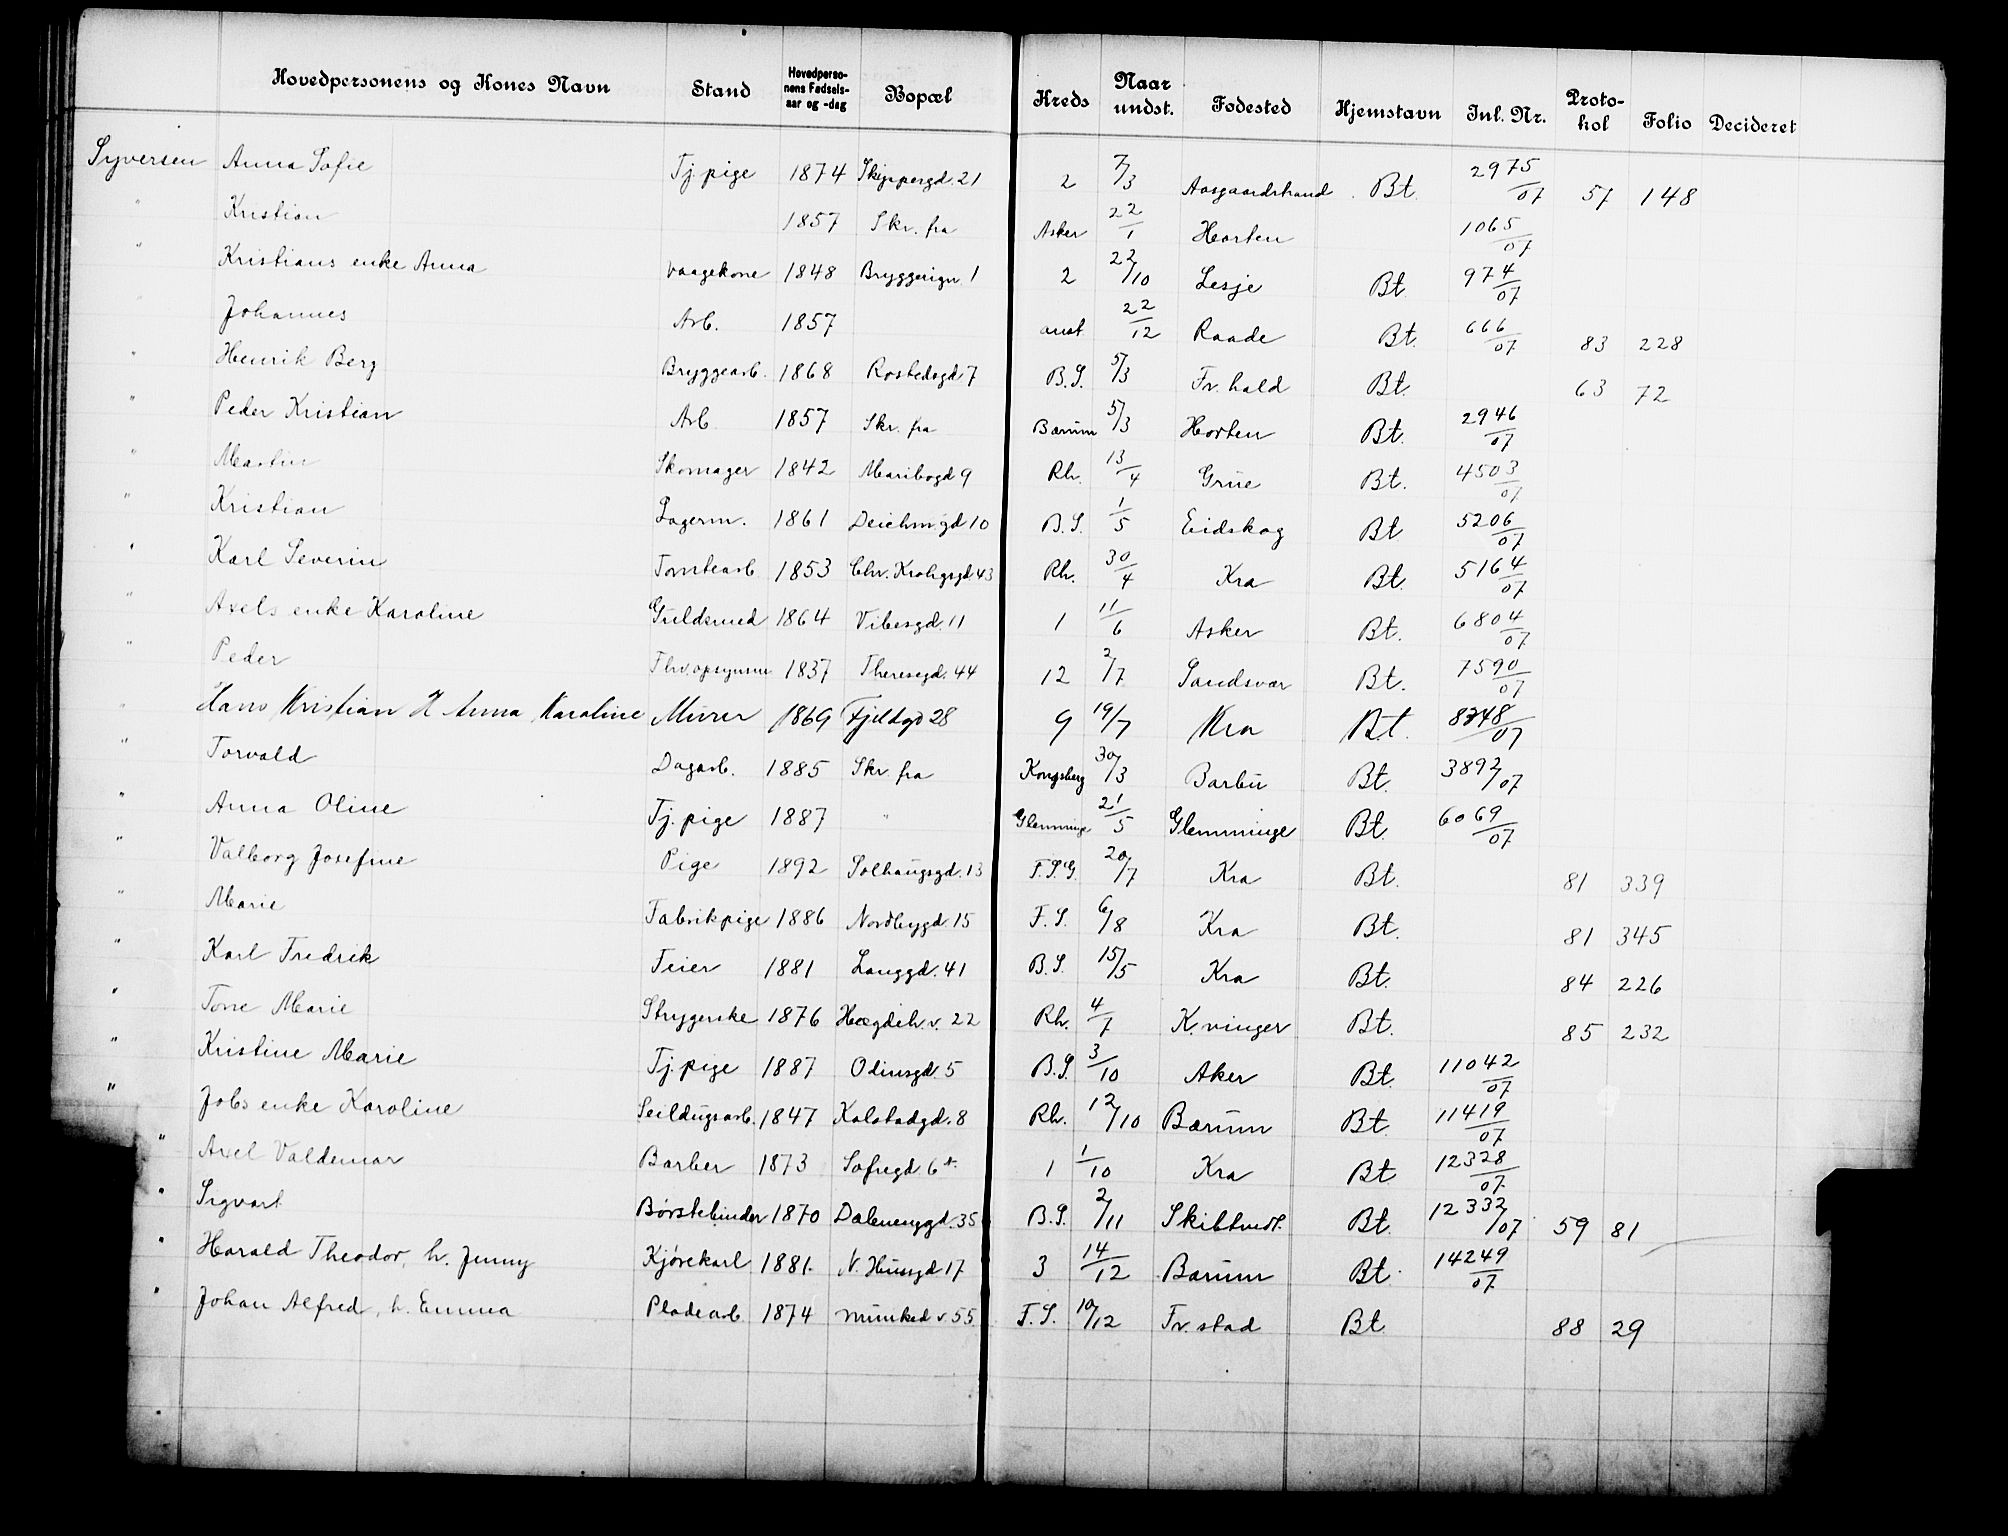 Hovedpersonens og Kones Navn Stand Hovedperso-nens Fødsels-aar og -dag Bopæl Kreds Naar undst. Fødested Hjemstavn Jnl. Nr. Proto-kol Folio Decideret
Syversen Anna Sofie Tj. pige 1874 Skippergd. 21 2 7/3 Aasgaardstrand Bt. 2975/07 57 148
" Kristian 1857 Skr. fra Asker 22/1 Horten 1065/07
" Kristians enke Anna vaagekone 1848 Bryggerign 1 2 22/10 Lesje Bt. 974/07
" Johannes Arb. 1857 anst. 22/12 Raade Bt. 666/07 83 228
" Henrik Berg Bryggearb. 1868 Rostedsgd 7 B.S. 5/3 Fr. hald Bt. 63 72
" Peder Kristian Arb. 1857 Skr. fra Bærum 5/3 Horten Bt. 2946/07
" Martin Skomager 1842 Maribogd 9 Rh. 13/4 Grue Bt. 4503/07
" Kristian Lagerm. 1861 Deichm.gd 10 B.S. 1/5 Eidskog Bt. 5206/07
" Karl Severin Tomtearb. 1853 Chr. Krohgsgd 43 Rh. 30/4 Kra Bt. 5164/07
" Axels enke Karoline Guldsmed 1864 Vibesgd. 11 1 11/6 Asker Bt. 6804/07
" Peder Thv.opsynsm 1837 Theresegd. 44 12 2/7 Sandsvær Bt. 7590/07
" Hans Kristian H Anna Karoline Murer 1869 Fjeldgd 28 9 19/7 Kra Bt. 8348/07
" Torvald Dagarb. 1885 Skr. fra Kongsberg 30/3 Barbu Bt. 3892/07
" Anna Oline Tj. pige 1887 " Glemminge 21/5 Glemminge Bt. 6069/07
" Valborg Josefine Pige 1892 Solhaugsgd. 13 F.S.G. 20/7 Kra Bt. 81 339
" Marie Fabrikpige 1886 Nordbygd. 15 F.S. 6/8 Kra Bt. 81 345
" Karl Fredrik Feier 1881 Langgd. 41 B.S. 15/5 Kra Bt. 84 226
" Tone Marie Strygerske 1876 Hægdeh.v. 22 Rh. 4/7 K.vinger Bt. 85 232
" Kristine Marie Tj. pige 1887 Odinsgd. 5 B.S. 3/10 Aker Bt. 11042/07
" Jobs enke Karoline Seildugsarb. 1847 Kalstadgd. 8 Rh. 12/10 Bærum Bt. 11419/07
" Axel Valdemar Barber 1873 Sofiegd. 6 1 1/10 Kra Bt 12328/07
" Sigvart Børstebinder 1870 Dælenenggd. 35 B.S. 2/11 Skibtvedt. Bt. 12332/07 59 81
" Harald Theodor, h. Jenny Kjørekarl 1881. N. Husgd 17 3 14/12 Bærum Bt. 14249/07
" Johan Alfred, h. Emma Pladearb. 1874 Munked v. 55 F.S. 10/12 Fr. stad Bt. 88 29